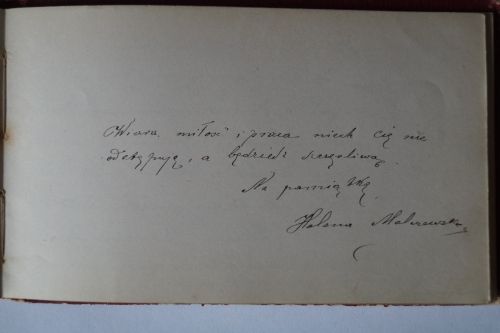 Wiara, miłość i praca niech cię nie
odstępują, a będziesz szczęśliwą.
Na pamiątkę
Helena Malczewska